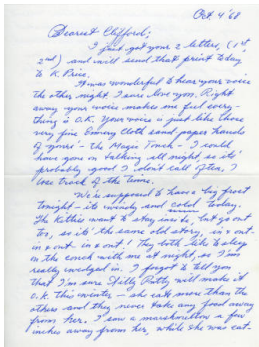 Oct 4 '68
Dearest Clifford;
I just got your 2 letters, (1st,
2nd) and will send that print today
to K. Price.
It was wonderful to hear your voice
the other night. I sure love you. Right
away your voice makes me feel every-
thing is O.K. Your voice is just like those
very fine Emery Cloth sand paper hands
of yours - the Magic Touch - I could
have gone on talking all night so it's
probably good I don't call often, I
lose track of the time.
We're supposed to have a big frost
tonight - it's windy and cold today.
The Kitties want to stay inside, but go out
too, so it's the same old story, in & out -
in & out - in & out! They both like to sleep
on the couch with me at night, so I'm
really wedged in. I forgot to tell you
that I'm sure Silly Putty will make it
O.K. this winter - she eats more than the
others and they never take any food away
from her. I saw a marshmallow a few
inches away from her, while she was eat-